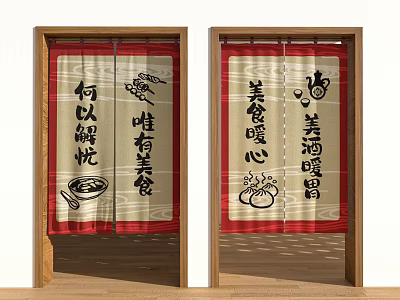 何以解忧
唯有美食
美食暖心
美酒暖胃